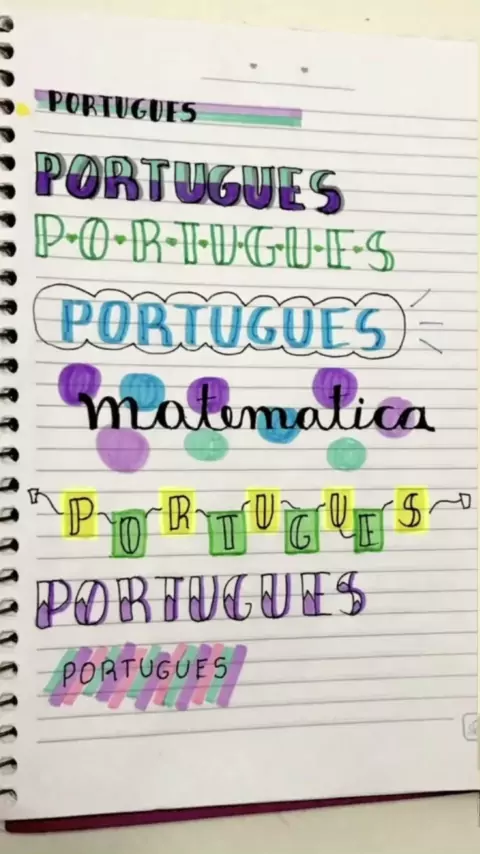 PORTUGUES
PORTUGUES
P·O·R·T·U·G·U·E·S
PORTUGUES
matematica
PORTUGUES
PORTUGUES
PORTUGUES